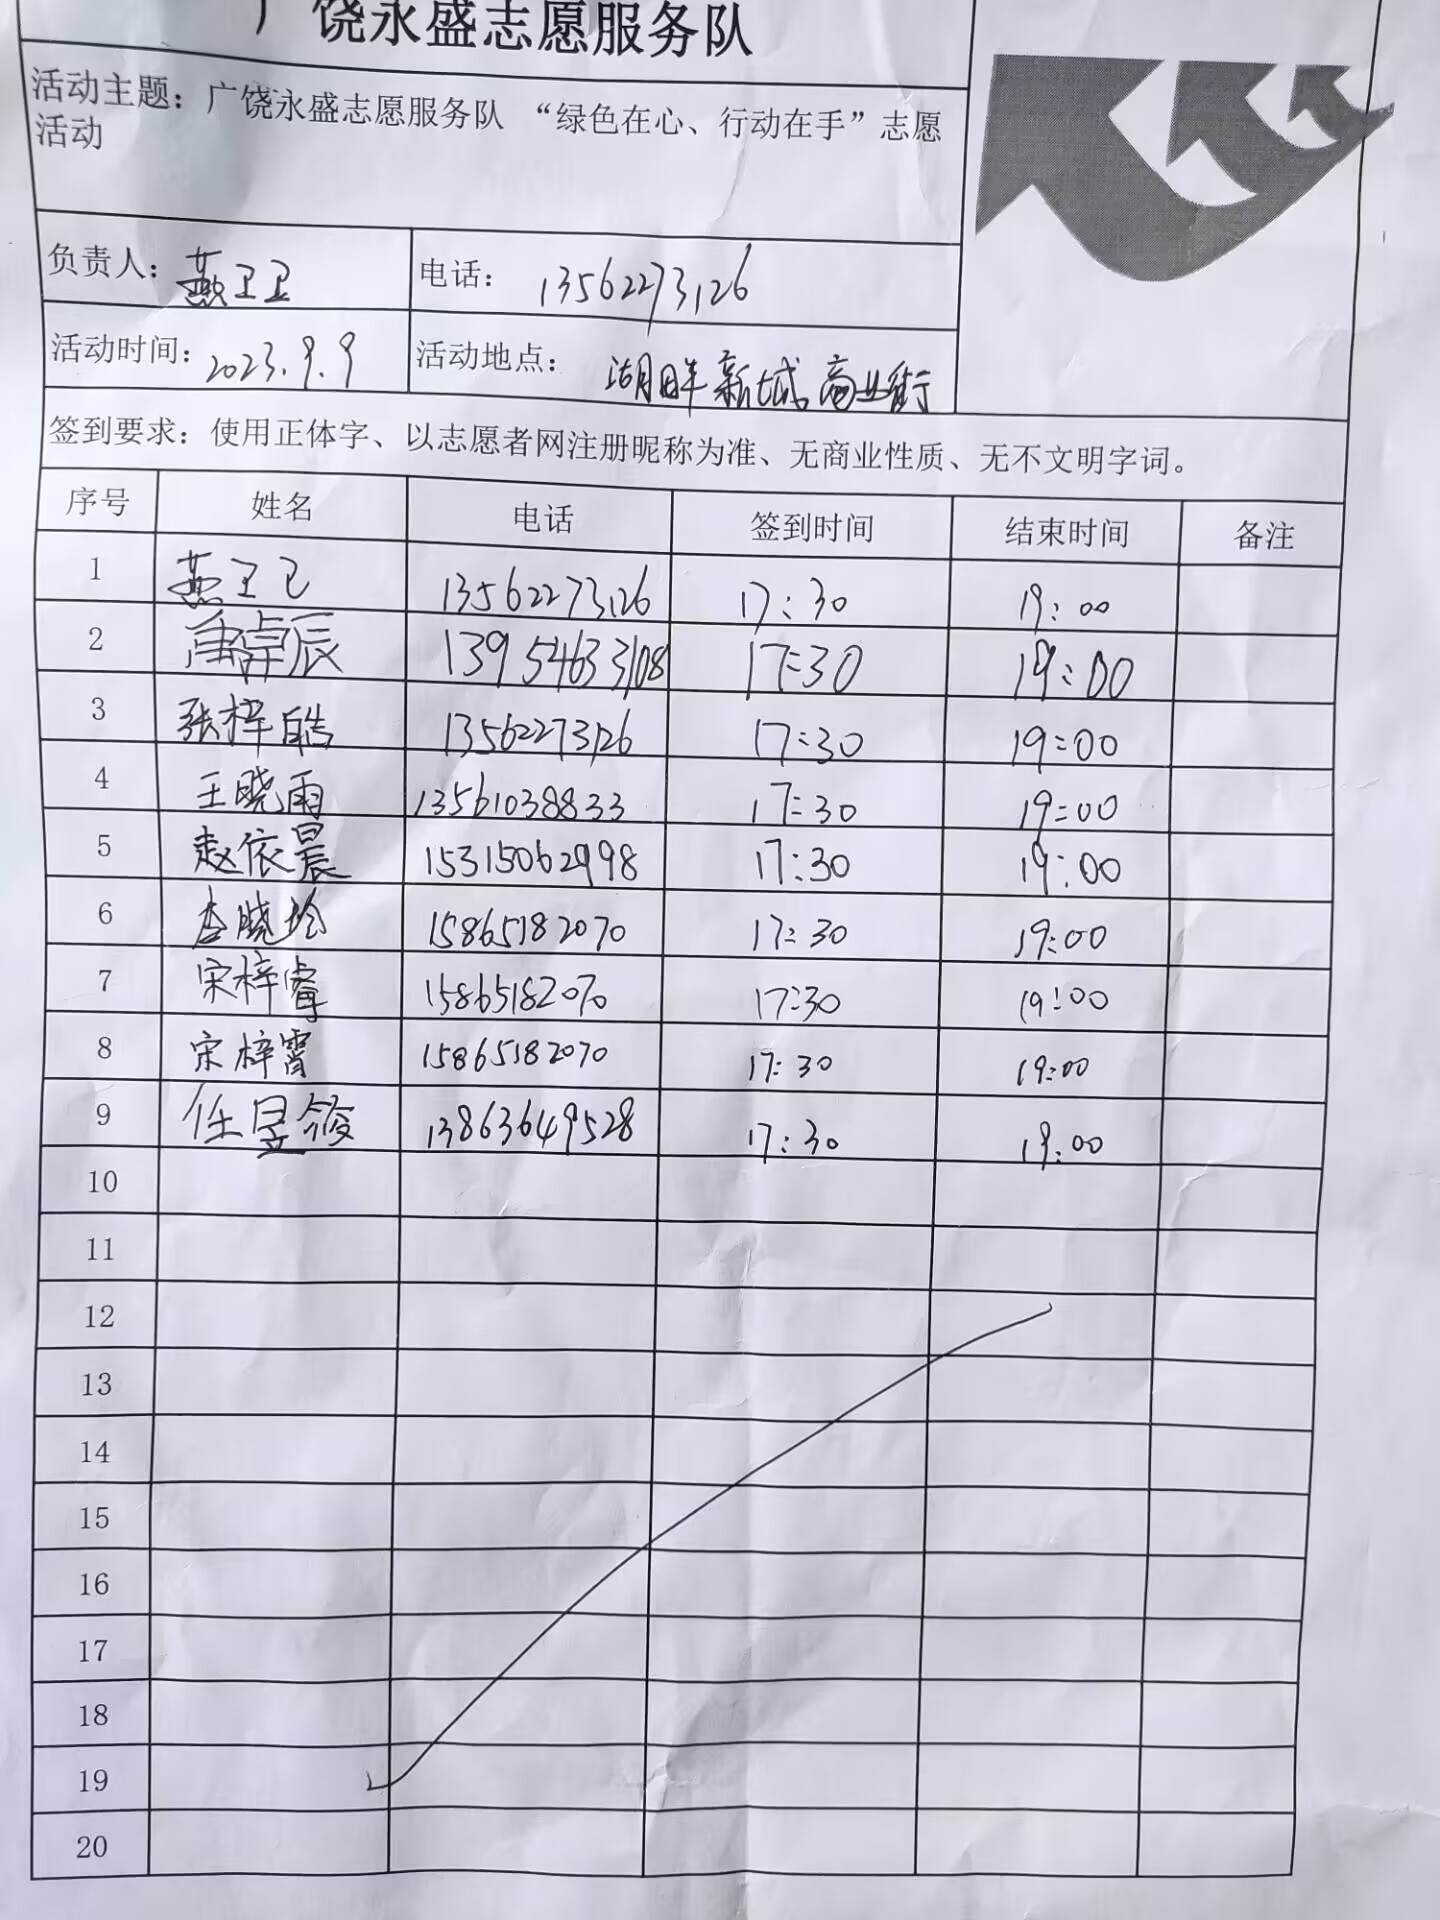 广饶永盛志愿服务队
活动主题：广饶永盛志愿服务队 “绿色在心、行动在手”志愿
活动
负责人：燕卫卫 电话：13562273126
活动时间：2023.9.9 活动地点：湖畔新城商业街
签到要求：使用正体字、以志愿者网注册昵称为准、无商业性质、无不文明字词。
序号 姓名 电话 签到时间 结束时间 备注
1 燕卫卫 13562273126 17:30 19:00
2 卓辰 13954633108 17:30 19:00
3 张梓皓 13562273126 17:30 19:00
4 王晓雨 13561038833 17:30 19:00
5 赵依晨 15315062998 17:30 19:00
6 李晓玲 15865182070 17:30 19:00
7 宋梓睿 15865182070 17:30 19:00
8 宋梓霄 15865182070 17:30 19:00
9 任昱 13863649528 17:30 19:00
10
11
12
13
14
15
16
17
18
19
20